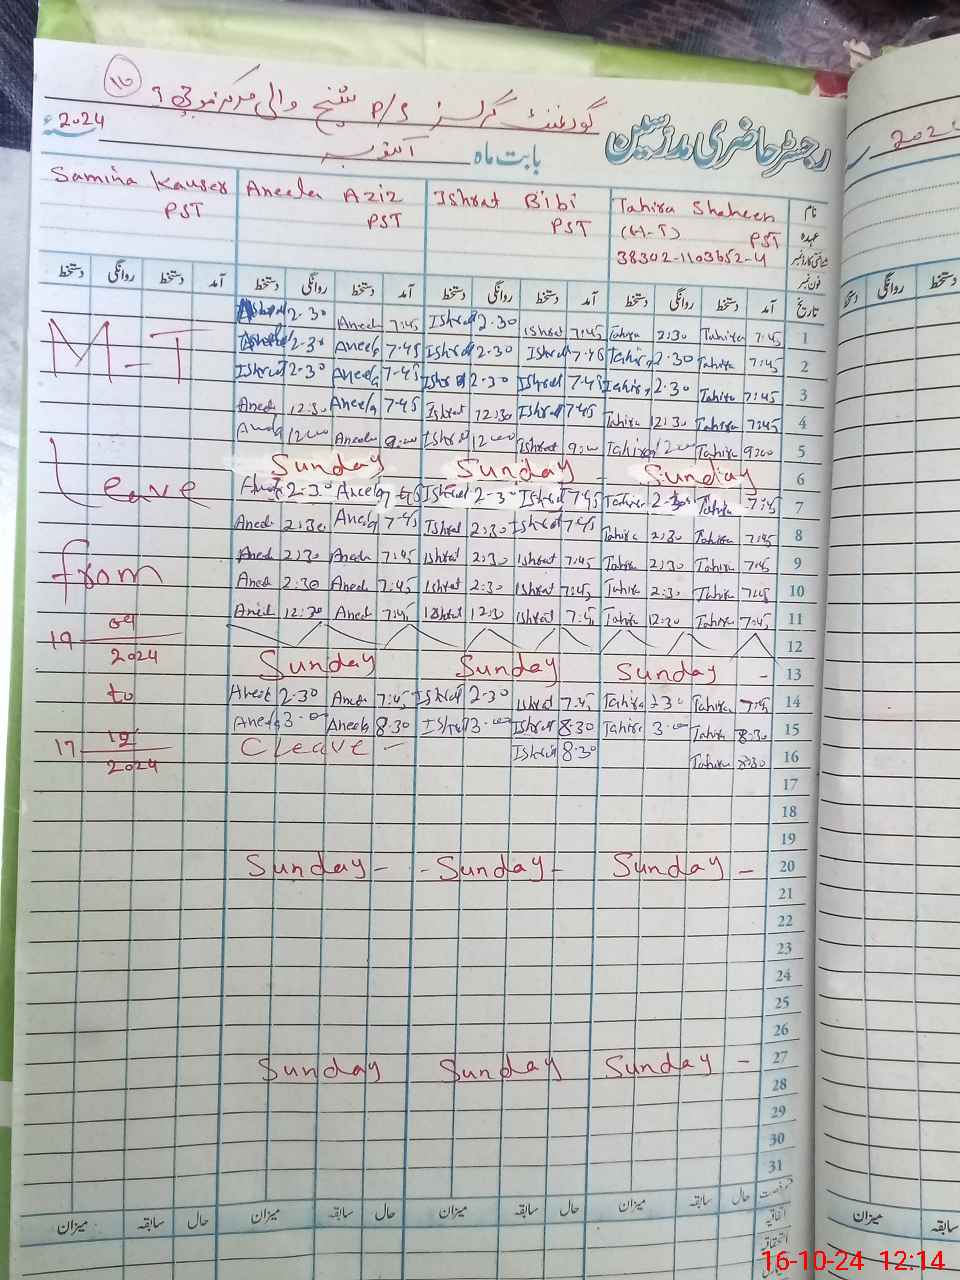 گورنمنٹ گرلز P/S شیخ والی مرکز
رجسٹر حاضری مدرسین
بابت ماہ اکتوبر 2024
2024
Samina Kauser Aneela Aziz Ishrat Bibi Tahira Shaheen نام
PST PST PST (H-T) PST عہدہ
38302-1103652-4 شناختی کارڈ نمبر
فون نمبر
دستخط روانگی دستخط آمد دستخط روانگی دستخط آمد دستخط روانگی دستخط آمد دستخط روانگی دستخط آمد تاریخ
2.30 Aneela 7:45 Ishrat 2.30 Ishrat 7:45 Tahira 2:30 Tahira 7:45 1
2.30 Aneela 7.45 Ishrat 2.30 Ishrat 7:45 Tahira 2.30 Tahira 7:45 2
Ishrat 2.30 Aneela 7-45 Ishrat 2.30 Ishrat 7.45 Tahira 2.30 Tahira 7:45 3
Aneela 12:30 Aneela 7.45 Ishrat 12:30 Ishrat 7.45 Tahira 12:30 Tahira 7:45 4
Aneela 12:00 Aneela 9:00 Ishrat 12:00 Ishrat 9:00 Tahira 12:00 Tahira 9:00 5
Sunday Sunday - Sunday 6
2.30 Aneela 7:45 Ishrat 2.30 Ishrat 7:45 Tahira 2.30 Tahira 7:45 7
Aneela 2:30 Aneela 7:45 Ishrat 2:30 Ishrat 7:45 Tahira 2:30 Tahira 7:45 8
Aneela 2:30 Aneela 7:45 Ishrat 2:30 Ishrat 7:45 Tahira 2:30 Tahira 7:45 9
Aneela 2:30 Aneela 7:45 Ishrat 2:30 Ishrat 7:45 Tahira 2:30 Tahira 7:45 10
Aneela 12:30 Aneela 7:45 Ishrat 12:30 Ishrat 7:45 Tahira 12:30 Tahira 7:45 11
12
Sunday Sunday Sunday - 13
Aneela 2.30 Aneela 7:45 Ishrat 2.30 Ishrat 7.45 Tahira Tahira 7:45 14
Aneela 3.00 Aneela 8.30 Ishrat 3.00 Ishrat 8.30 Tahira 3.00 Tahira 8:30 15
C Leave - Ishrat 8.30 Tahira 8:30 16
17
18
19
Sunday - - Sunday - Sunday - 20
21
22
23
24
25
26
Sunday Sunday Sunday - 27
28
29
30
31
M-T
Leave
from
19 09
2024
to
17 12
2024
میزان سابقہ حال میزان سابقہ حال میزان سابقہ حال میزان سابقہ حال قسم رخصت
اتفاقیہ
دستخط روانگی
میزان سابقہ
16-10-24 12:14